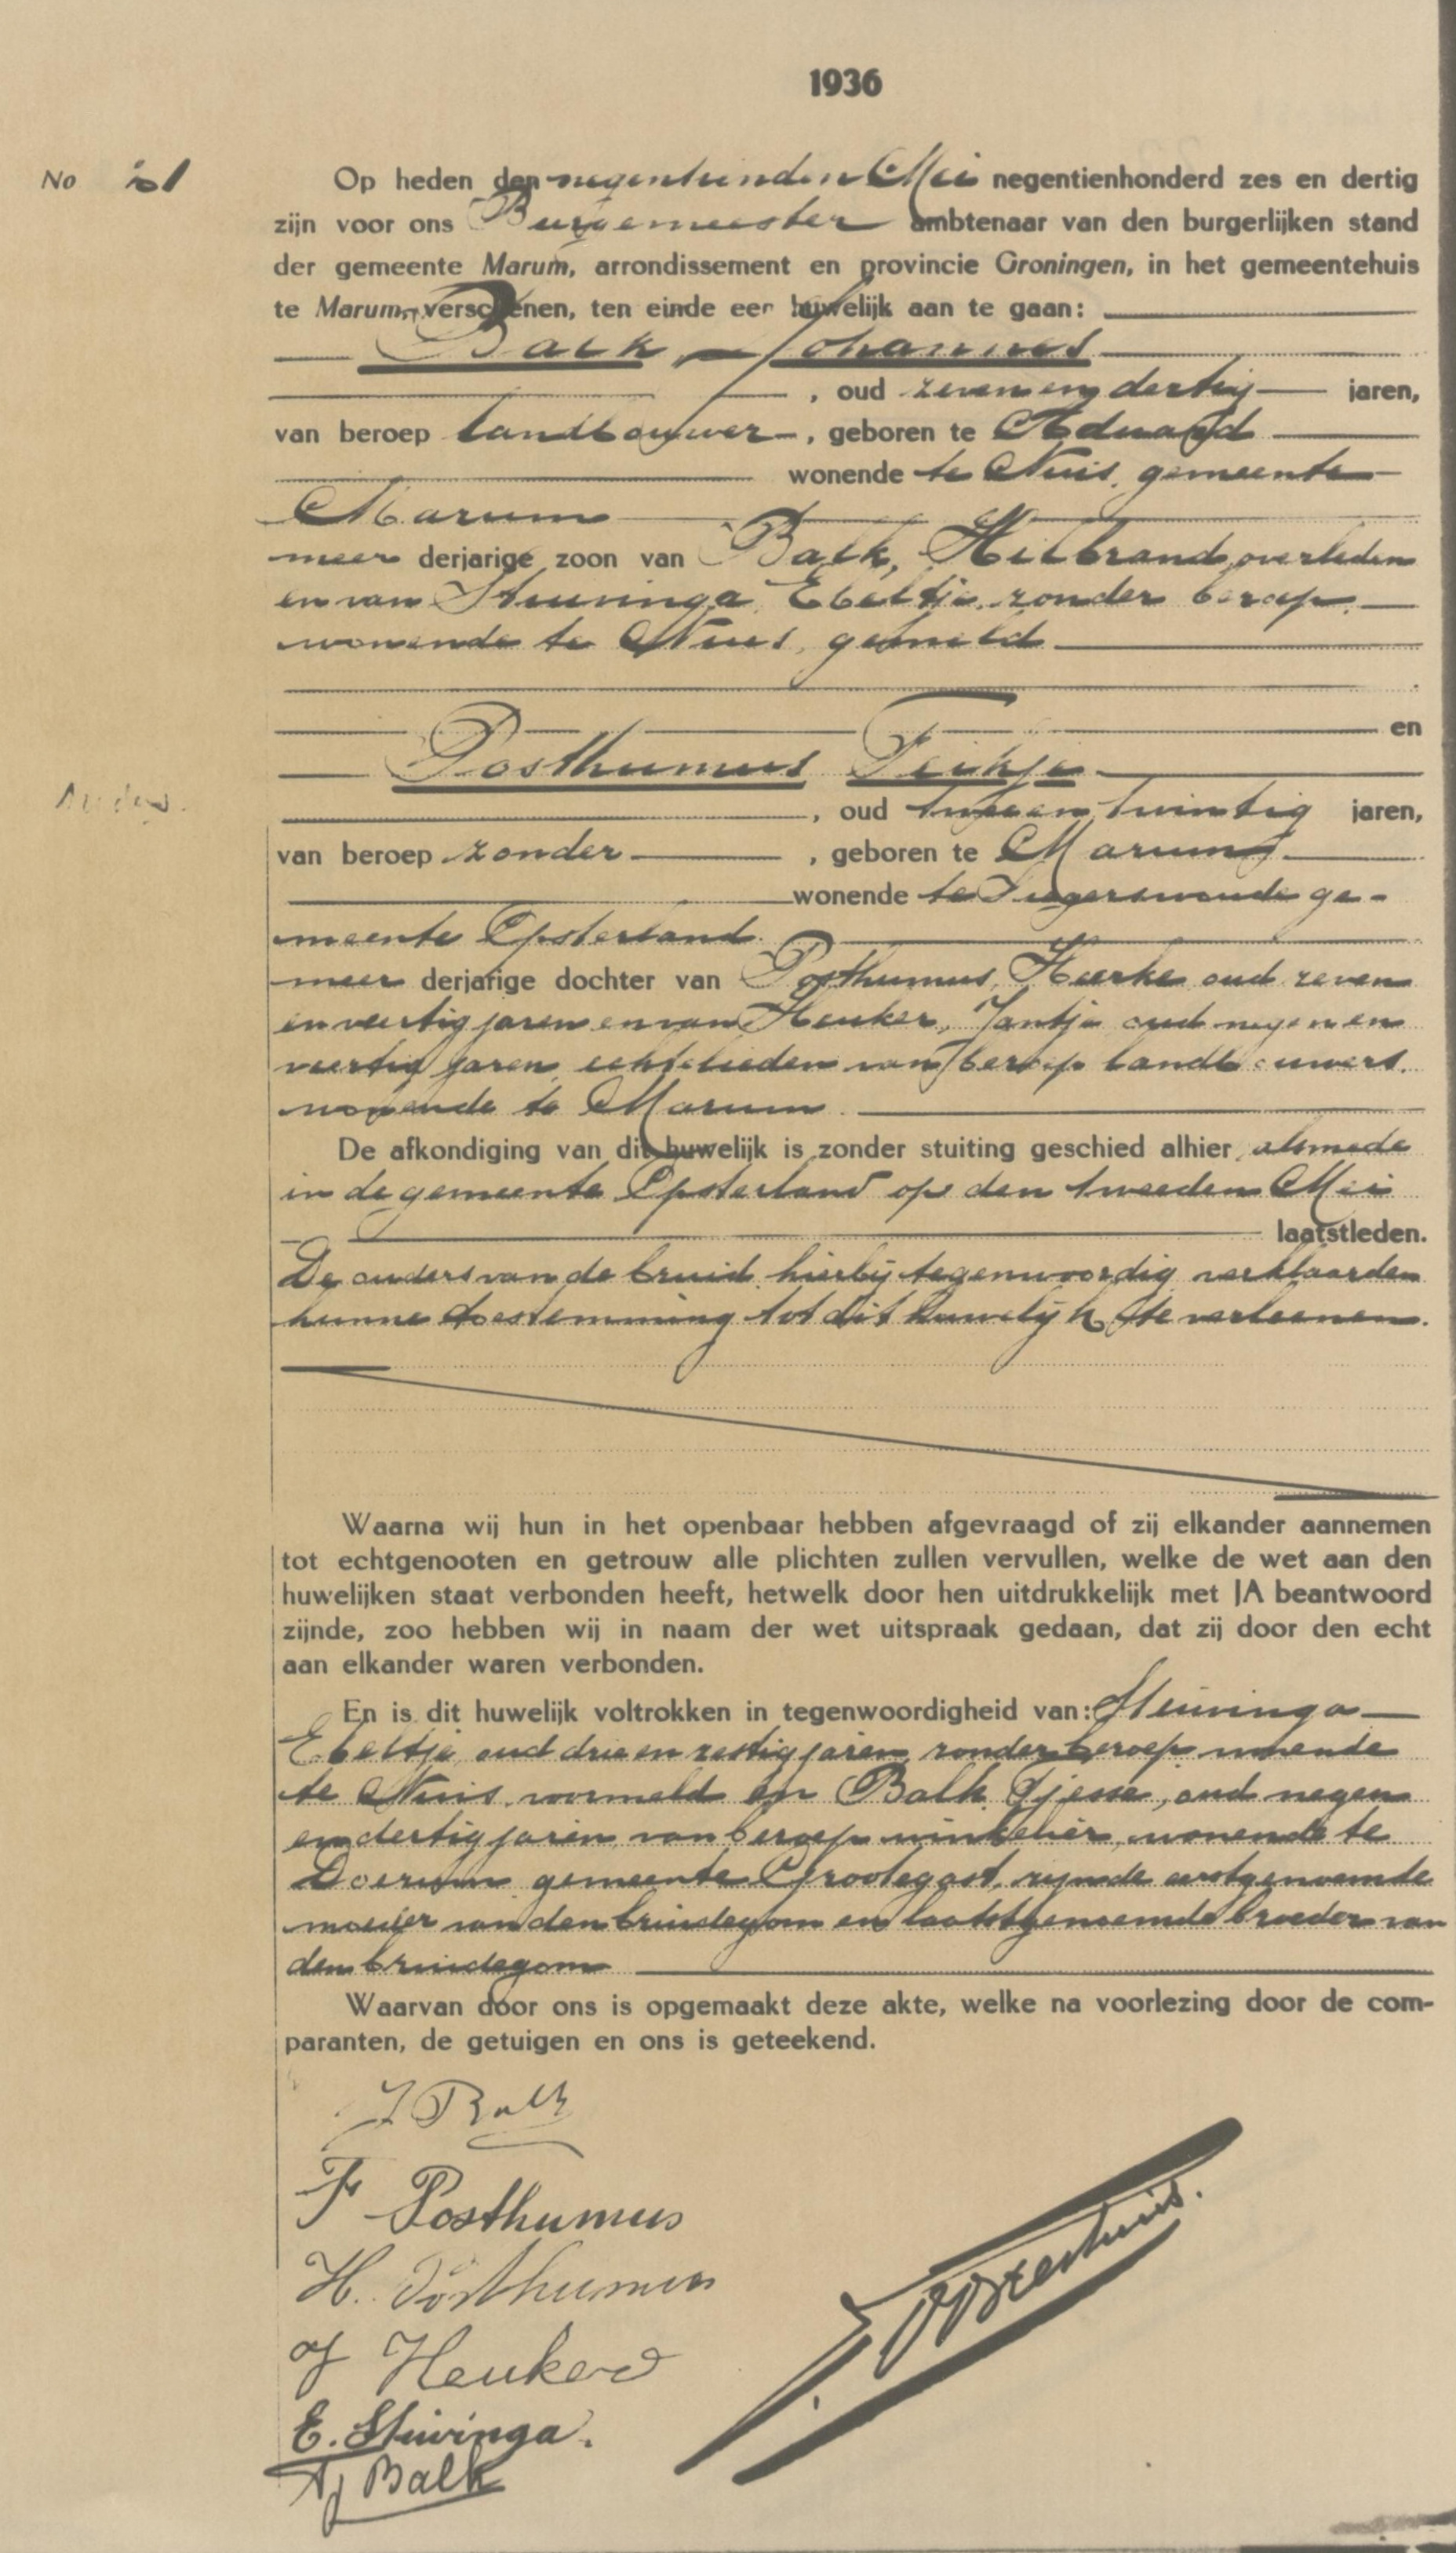 1936
No
Op heden den negentienden Mei negentienhonderd zes en dertig
zijn voor ons Burgemeester ambtenaar van den burgerlijken stand
der gemeente Marum, arrondissement en provincie Groningen, in het gemeentehuis
te Marum, verschenen, ten einde een huwelijk aan te gaan:
Balk, Johannes
, oud zeven en dertig jaren,
van beroep landbouwer, geboren te Aduard
wonende te Nuis, gemeente
Marum
meer derjarige zoon van Balk, Hilbrand, overleden
en van Stuivinga, Ebeltje, zonder beroep,
wonende te Nuis, gemeld
en
Posthumus Feikje
, oud twee en twintig jaren,
van beroep zonder, geboren te Marum
wonende te Siegerswoude ge-
meente Opsterland
meer derjarige dochter van Posthumus, Heerke oud zeven
en veertig jaren en van Heuker, Jantje oud negen en
veertig jaren, echtelieden van beroep landbouwers.
wonende te Marum.
De afkondiging van dit huwelijk is zonder stuiting geschied alhier, alsmede
in de gemeente Opsterland op den tweeden Mei
laatstleden.
De ouders van de bruid, hierbij tegenwoordig verklaarden
hunne toestemming tot dit huwelijk te verleenen.
Waarna wij hun in het openbaar hebben afgevraagd of zij elkander aannemen
tot echtgenooten en getrouw alle plichten zullen vervullen, welke de wet aan den
huwelijken staat verbonden heeft, hetwelk door hen uitdrukkelijk met JA beantwoord
zijnde, zoo hebben wij in naam der wet uitspraak gedaan, dat zij door den echt
aan elkander waren verbonden.
En is dit huwelijk voltrokken in tegenwoordigheid van: Stuivinga
Ebeltje oud drie en zestig jaren, zonder beroep wonende
te Nuis, voormeld en Balk, Tjesse, oud negen
en dertig jaren van beroep winkelier, wonende te
Doezum gemeente Grootegast, zijnde eerstgenoemde
moeder van den bruidegom en laatstgenoemde broeder van
den bruidegom
Waarvan door ons is opgemaakt deze akte, welke na voorlezing door de com-
paranten, de getuigen en ons is geteekend.
J Balk
F Posthumus
H. Posthumus
J Heuker
E. Stuivinga.
Tj Balk